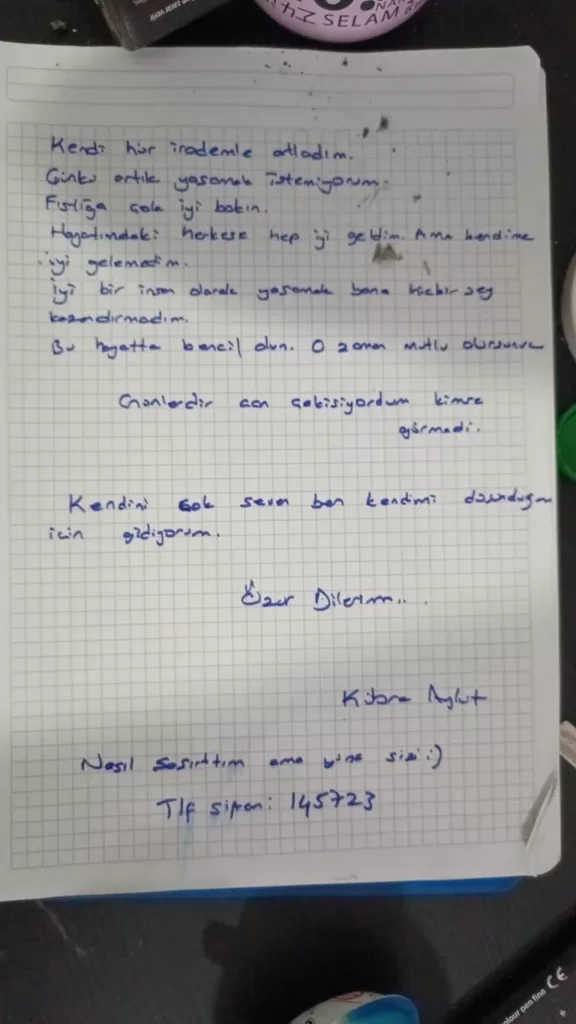 SELAM
Kendi hür irademle atladım.
Çünkü artık yaşamak istemiyorum.
Fıstığa çok iyi bakın.
Hayatımdaki herkese hep iyi geldim. Ama kendime
iyi gelemedim.
iyi bir insan olarak yaşamak bana hiçbir şey
kazandırmadım.
Bu hayatta bencil olun. O zaman mutlu olursunuz
Günlerdir can çekişiyordum kimse
görmedi.
Kendini çok seven ben kendimi düşündüğüm
için gidiyorum.
Özür Dilerim...
Kübra Aykut
Nasıl şaşırttım ama yine sizi :)
Tlf şifrem: 145723
colour pen fine CE